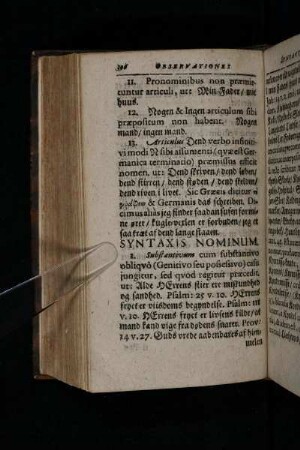 OBSERVATIONES
11. Pronominibus non præmit-
tuntur articuli, ut: Min Fader / mit
huus.
12. Nogen & Ingen articulum sibi
præpositum non habent. Nogen
mand / ingen mand.
13. Articulus Dend verbo infiniti-
vi modi N sibi assumenti, (quæ est Ger-
manica terminatio) præmissus efficit
nomen, ut: Dend skriven / dend
dend stirren / dend støden /
dend riven i livet. Sic Græcis dicitur
& Germanis das schreiben. Di-
cimus aliàs jeg finder saa den
kuglen er forbuden / jeg er
saa træt af dend lange staaen.
SYNTAXIS NOMINUM.
1. Substantivum cum substantivo
obliqvô (Genitivo seu possessivo) con-
jungitur, sed qvod regitur præcedit,
ut: Alle HErrens stier ere miskundhed
og sandhed. Psalm: 25 v. 10. HErrens
fryct er viisdoms begyndelse. Psalm: 111
v. 10. HErrens fryct er livsens kilde / at
mand kand vige fra dødsens snarer. Prov:
14 v. 27. Guds vrede aabenbares af him-
melen